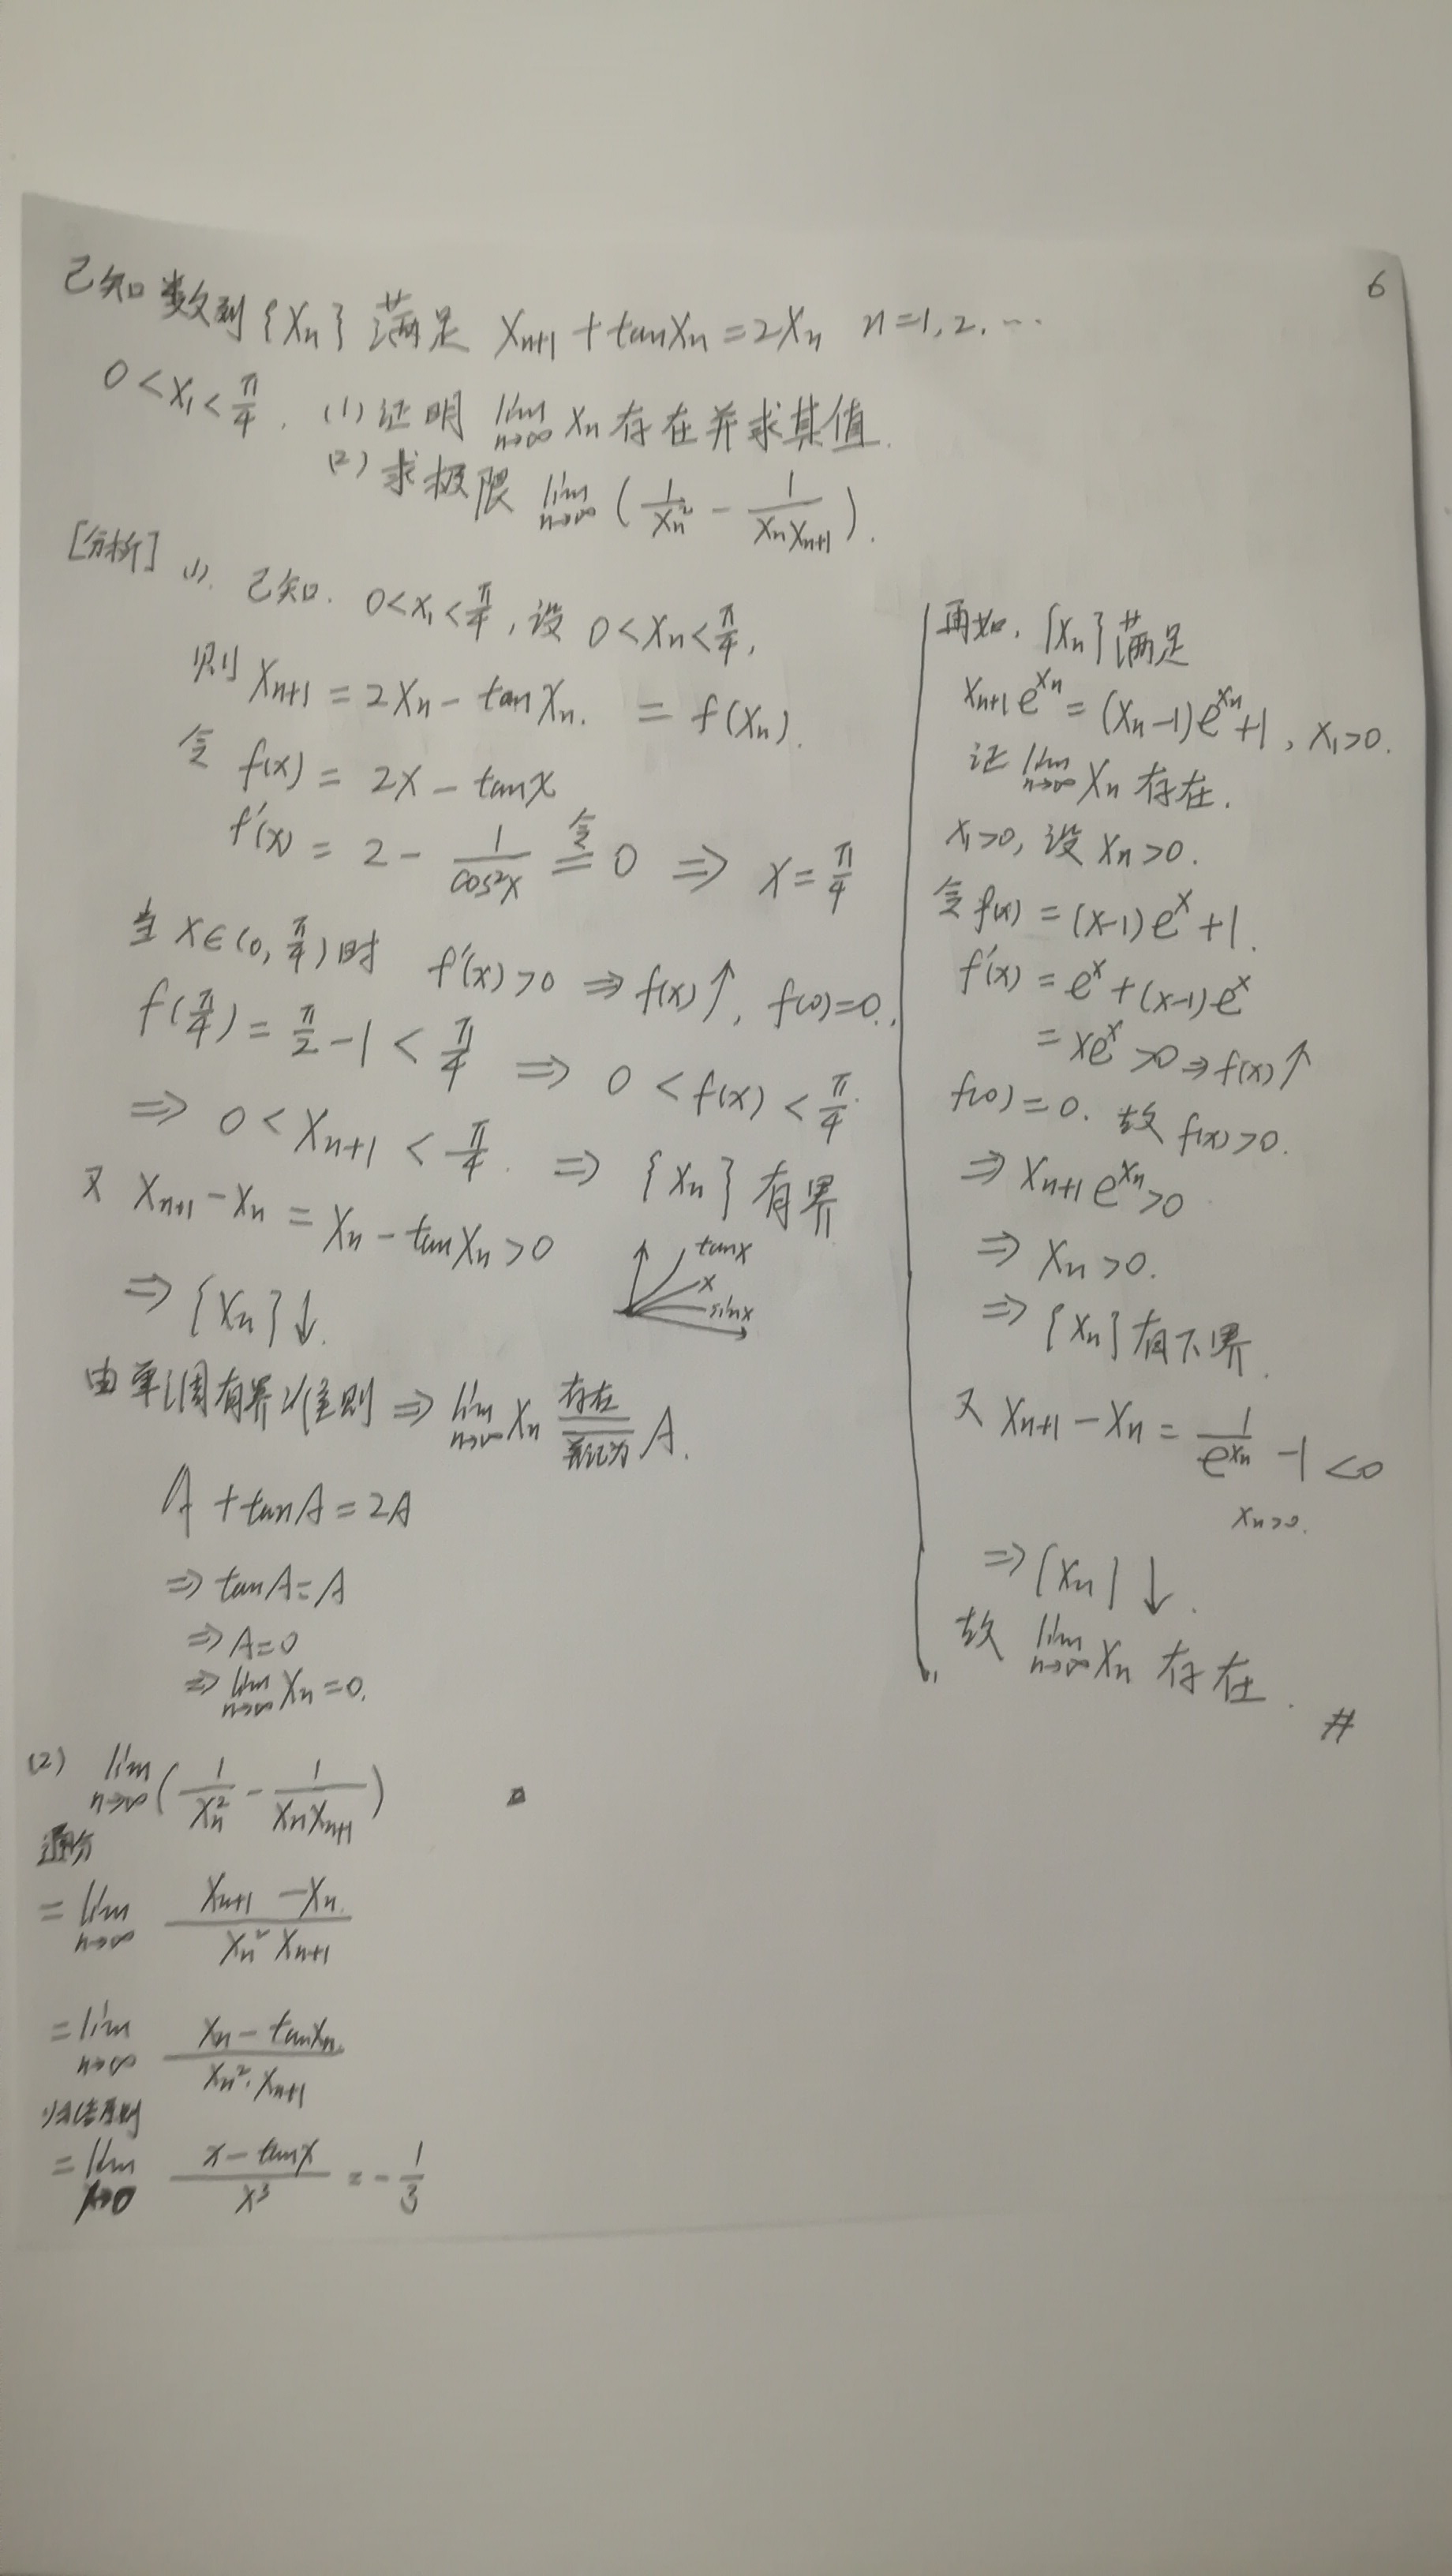 6
已知数列{Xn}满足 Xn+1 + tanXn = 2Xn n=1,2,…
0<X1<π/4. (1) 证明 lim n→∞ Xn 存在并求其值.
(2) 求极限 lim n→∞ (1/Xn² − 1/(XnXn+1)).
[分析] (1). 已知. 0<X1<π/4, 设 0<Xn<π/4,
则 Xn+1 = 2Xn − tanXn. = f(Xn).
令 f(x) = 2X − tanX
f'(x) = 2 − 1/cos²x 令= 0 ⇒ X = π/4
当 X∈(0, π/4)时 f'(x)>0 ⇒ f(x)↑, f(0)=0.,
f(π/4) = π/2 − 1 < π/4 ⇒ 0 < f(x) < π/4.
⇒ 0 < Xn+1 < π/4. ⇒ {Xn} 有界
又 Xn+1 − Xn = Xn − tanXn > 0
tanx
x
sinx
⇒ {Xn}↓.
由单调有界准则 ⇒ lim n→∞ Xn 存在 并记为 A.
A + tanA = 2A
⇒ tanA = A
⇒ A=0
⇒ lim n→∞ Xn = 0.
(2) lim n→∞ (1/Xn² − 1/(XnXn+1))
通分
= lim n→∞ (Xn+1 − Xn.)/(Xn² Xn+1)
= lim n→∞ (Xn − tanXn.)/(Xn²·Xn+1)
归结原则
= lim x→0 (x − tanx)/x³ = −1/3
再如, {Xn}满足
Xn+1 e^Xn = (Xn−1)e^Xn +1, X1>0.
证 lim n→∞ Xn 存在.
X1>0, 设 Xn>0.
令 f(x) = (x−1)e^x + 1.
f'(x) = e^x + (x−1)e^x
= xe^x >0 ⇒ f(x)↑
f(0) = 0. 故 f(x)>0.
⇒ Xn+1 e^Xn >0
⇒ Xn >0.
⇒ {Xn}有下界.
又 Xn+1 − Xn = 1/e^Xn − 1 <0
Xn>0.
⇒ {Xn}↓.
故 lim n→∞ Xn 存在.
#